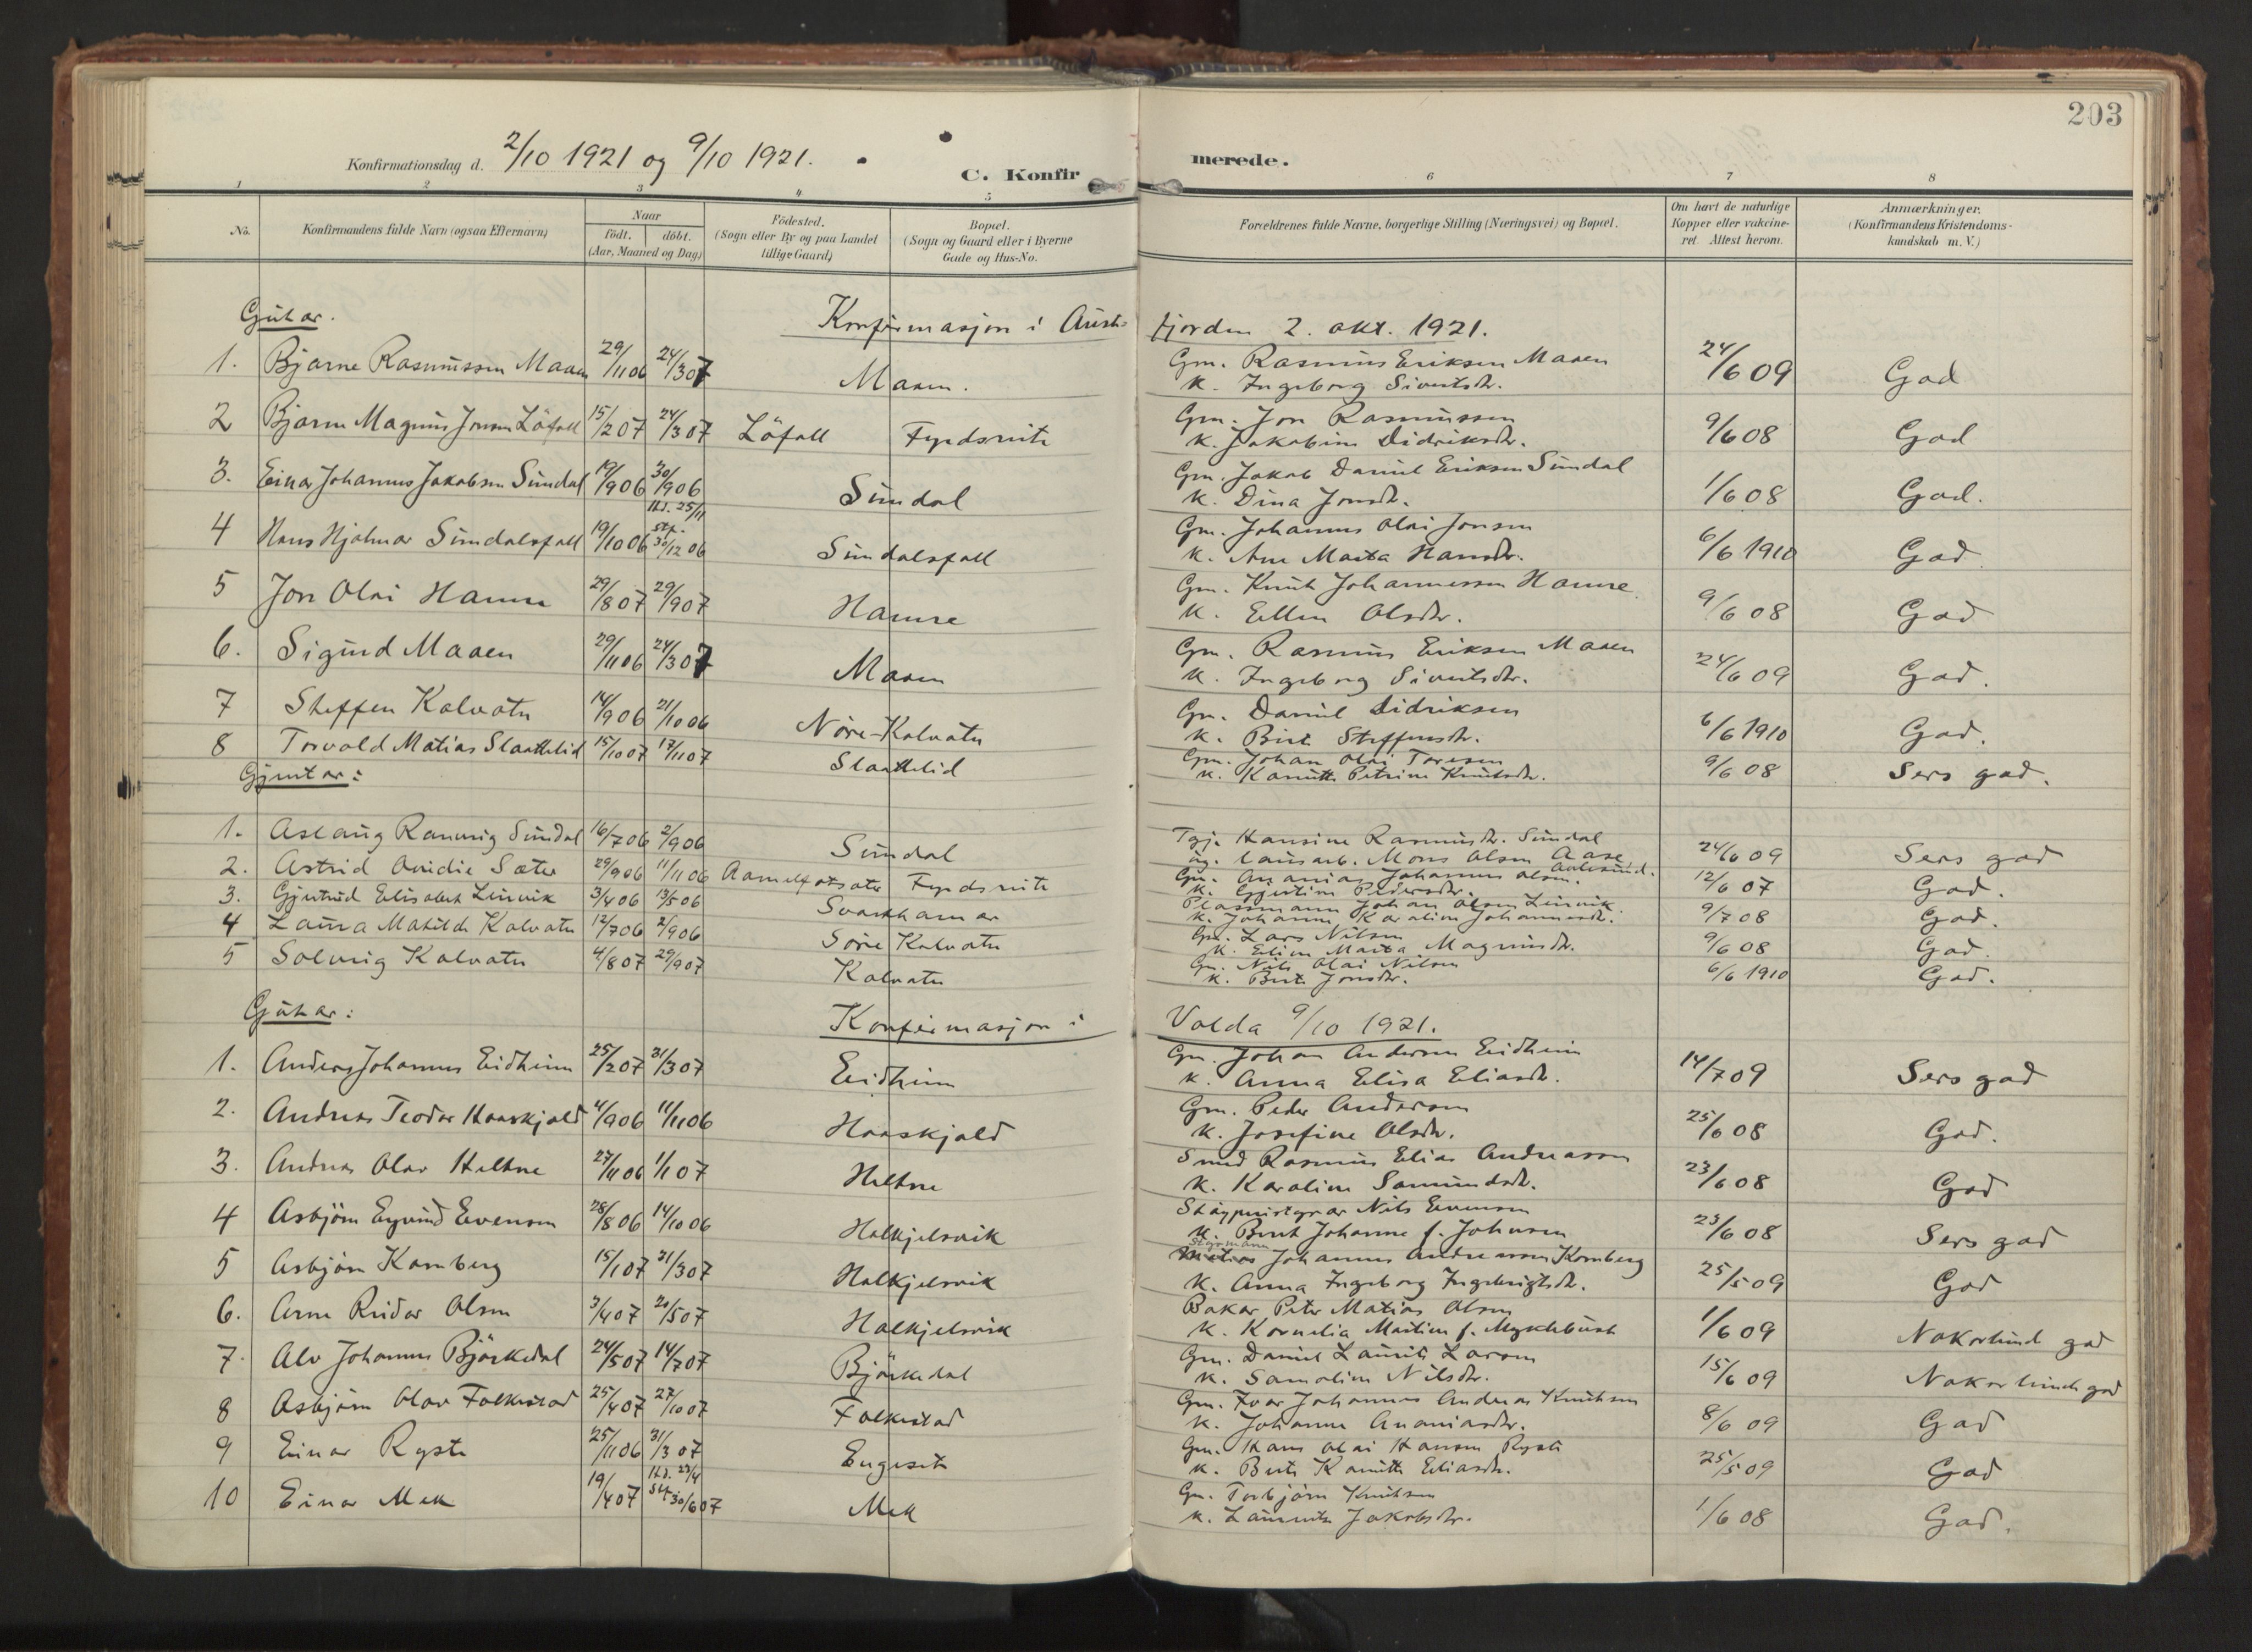 203
Konfirmationsdag d. 2/10 1921 og 9/10 1921.
C. Konfirmerede.
1 2 3 4 5 6 7 8
No.
Konfirmandens fulde Navn (ogsaa Efternavn)
Naar
födt. döbt.
(Aar, Maaned og Dag)
Födested.
(Sogn eller By og paa Landet
tillige Gaard)
Bopæl.
(Sogn og Gaard eller i Byerne
Gade og Hus-No.
Forældrenes fulde Navne, borgerlige Stilling (Næringsvei) og Bopæl.
Om havt de naturlige
Kopper eller vakcine-
ret. Attest herom.
Anmærkninger.
(Konfirmandens Kristendoms-
kundskab m. V.)
Gutar.
Konfirmasjon i Aust- fjorden 2. okt. 1921.
1. Bjarne Rasmussen Maaen 29/11 06 24/3 07 Maaen. Gm. Rasmus Eriksen Maaen 24/6 09 God
K. Ingeborg Sivertsdtr.
2 Bjarne Magnus Jonsen Löfall 15/2 07 24/3 07 Löfall Fyrdsvite Gm. Jon Rasmussen 9/6 08 God
K. Jakobine Didriksdtr.
3. Einar Johannes Jakobsen Sundal 19/9 06 30/9 06 Sundal Gm. Jakob Daniel Eriksen Sundal 1/6 08 God.
K. Dina Jonsdtr.
4 Hans Hjalmar Sundalsfall 19/10 06 Hd. 25/11 stf. 30/12 06 Sundalsfall Gm. Johannes Olai Jonsen 6/6 1910 God
K. Ane Marta Hansdtr.
5 Jon Olai Hamre 29/8 07 29/9 07 Hamre Gm. Knut Johannessen Hamre 9/6 08 God
K. Ellen Olsdtr.
6. Sigurd Maaen 29/11 06 24/3 07 Maaen Gm. Rasmus Eriksen Maaen 24/6 09 God.
K. Ingeborg Sivertsdtr.
7 Steffen Kalvatn 14/9 06 21/10 06 Nöre-Kalvatn Gm. Daniel Didriksen 6/6 1910 God.
K. Birte Steffensdtr.
8 Torvald Matias Slaattelid 15/10 07 17/11 07 Slaattelid Gm. Johan Olai Toresen 9/6 08 Sers god.
K. Kanutte Petrine Knutsdtr.
Gjentar:
1. Aslaug Rannvig Sundal 16/7 06 2/9 06 Sundal Tgj. Hansine Rasmusdtr. Sundal 24/6 09 Sers god
ug. lausarb. Mons Olsen Aase, Aalesund.
2. Astrid Ovidie Sæter 29/9 06 11/11 06 Aamelfotsæter Fyrdsvite Gm. Ananias Johannes Olsen. 12/6 07 God.
K. Gjertine Pedersdtr.
3. Gjertrud Elisabet Leinvik 3/4 06 13/5 06 Svarthamar Plassmann Johan Olsen Leinvik. 9/7 08 God.
K. Johanne Karoline Johannesdtr.
4 Laura Matilde Kalvatn 12/7 06 2/9 06 Söre Kalvatn Gm. Lars Nilsen 9/6 08 God.
K. Eline Marta Magnusdtr.
5 Solveig Kalvatn 4/8 07 29/9 07 Kalvatn Gm. Nils Olai Nilsen 6/6 1910 God.
K. Berte Jonsdtr.
Gutar:
Konfirmasjon i Volda 9/10 1921.
1. Anders Johannes Eidheim 25/2 07 31/3 07 Eidheim Gm. Johan Andersen Eidheim 14/7 09 Sers god
K. Anna Elisa Eliasdtr.
2. Andreas Teodor Haaskjold 4/9 06 11/11 06 Haaskjold Gm. Peder Andersen 25/6 08 God.
K. Josefine Olsdtr.
3. Andreas Olav Heltne 27/11 06 1/1 07 Heltne Smed Rasmus Elias Andreassen 23/6 08 God
K. Karoline Samundsdtr.
4 Asbjörn Eyvind Evensen 28/8 06 14/10 06 Halkjelsvik Støyperistyrar Nils Evensen 23/6 08 Sers god
K. Berit Johanne f. Johnsen
5 Asbjörn Kornberg 15/1 07 31/3 07 Halkjelsvik Styrmann Johannes Andreassen Kornberg 25/5 09 God
K. Anna Ingeborg Ingebrigtsdtr.
6. Arne Reidar Olsen 3/4 07 20/5 07 Halkjelsvik Bakar Peter Matias Olsen 1/6 09 Nokorlunde god
K. Kornelia Martine f. Myklebust
7. Alv Johannes Björkedal 24/5 07 14/7 07 Björkedal Gm. Daniel Laurits Larsen 15/6 09 Nokorlunde god
K. Samoline Nilsdtr.
8 Asbjörn Olav Folkestad 25/4 07 27/10 07 Folkestad Gm. Ivar Johannes Andreas Knutsen 8/6 09 God
K. Johanne Ananiasdtr.
9 Einar Ryste 25/11 06 31/3 07 Engeset Gm. Hans Olai Hansen Ryste 25/5 09 God
K. Berte Kanutte Eliasdtr.
10 Einar Mek 19/4 07 Hd. 23/4 stf. 30/6 07 Mek Gm. Torbjörn Knutsen 1/6 08 God.
K. Laurentse Jakobsdtr.